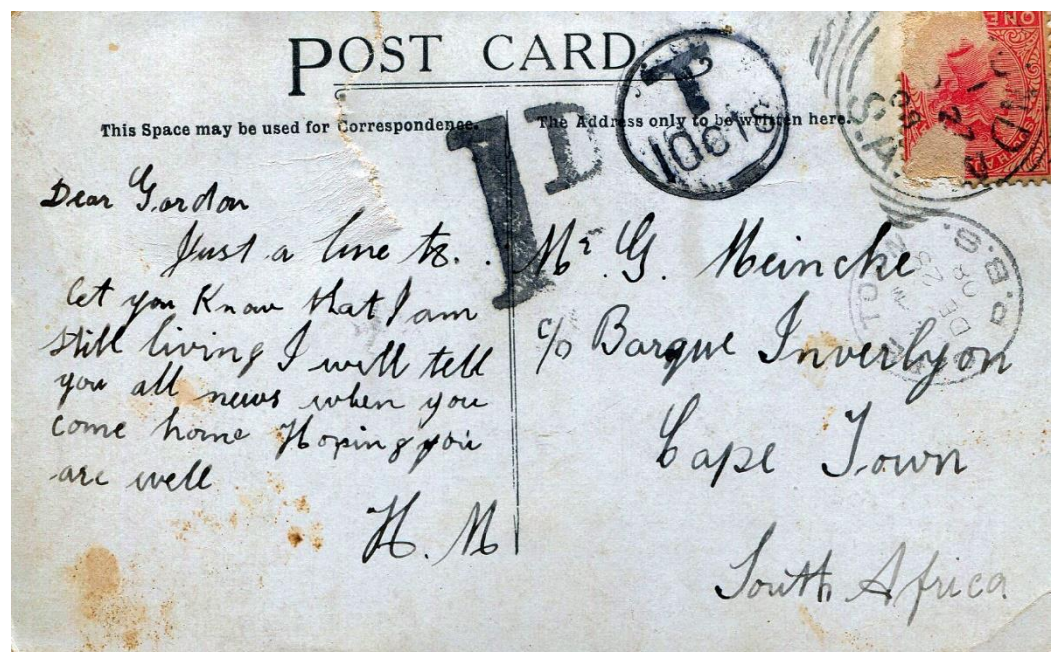 POST CARD
This Space may be used for Correspondence.
The Address only to be written here.
1D
T
10CTS
S.A.
ONE
P.B.S.
DE
23
08
Dear Gordon
Just a line to
let you Know that I am
still living I will tell
you all news when you
come home Hoping you
are well
H. M
Mr. G. Meincke
c/o Barque Inverlyon
Cape Town
South Africa